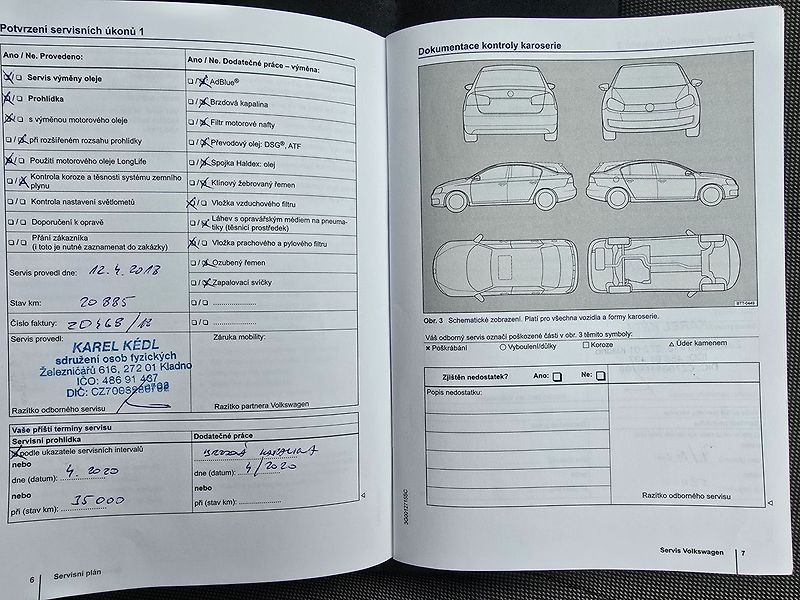 Potvrzení servisních úkonů 1
Ano / Ne. Provedeno:
Servis výměny oleje
Prohlídka
s výměnou motorového oleje
při rozšířeném rozsahu prohlídky
Použití motorového oleje LongLife
Kontrola koroze a těsnosti systému zemního
plynu
Kontrola nastavení světlometů
Doporučení k opravě
Přání zákazníka
(i toto je nutné zaznamenat do zakázky)
Servis provedl dne: 12.4.2018
Stav km: 20 885
Číslo faktury: ZD468/18
Servis provedl:
KAREL KÉDL
sdružení osob fyzických
Železničářů 616, 272 01 Kladno
IČO: 486 91 437
DIČ:
Razítko odborného servisu
Ano / Ne. Dodatečné práce – výměna:
AdBlue®
Brzdová kapalina
Filtr motorové nafty
Převodový olej: DSG®, ATF
Spojka Haldex: olej
Klínový žebrovaný řemen
Vložka vzduchového filtru
Láhev s opravářským médiem na pneuma-
tiky (těsnicí prostředek)
Vložka prachového a pylového filtru
Ozubený řemen
Zapalovací svíčky
Záruka mobility:
Razítko partnera Volkswagen
Vaše příští termíny servisu
Servisní prohlídka
podle ukazatele servisních intervalů
nebo
dne (datum): 4.2020
nebo
při (stav km): 35 000
Dodatečné práce
BRZDOVÁ KAPALINA
dne (datum): 4/2020
nebo
při (stav km):
6 Servisní plán
Dokumentace kontroly karoserie
BTT-0449
Obr. 3 Schematické zobrazení. Platí pro všechna vozidla a formy karoserie.
Váš odborný servis označí poškozené části v obr. 3 těmito symboly:
× Poškrábání ○ Vyboulení/důlky □ Koroze △ Úder kamenem
Zjištěn nedostatek? Ano: Ne:
Popis nedostatku:
Razítko odborného servisu
Servis Volkswagen 7